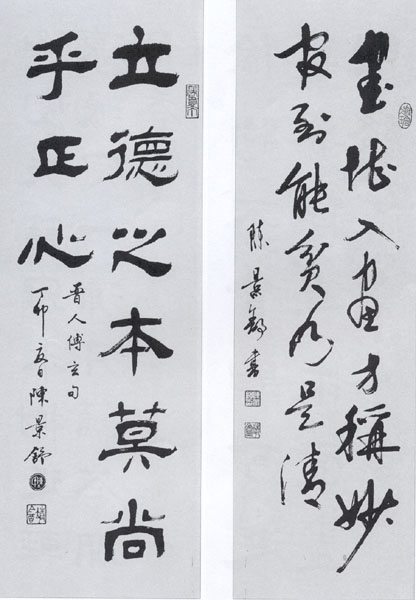 書堪入畫方稱妙
官到能貧乃是清
陳景舒書
立德之本莫尚
乎正心
晉人傅玄句
丁卯夏日陳景舒